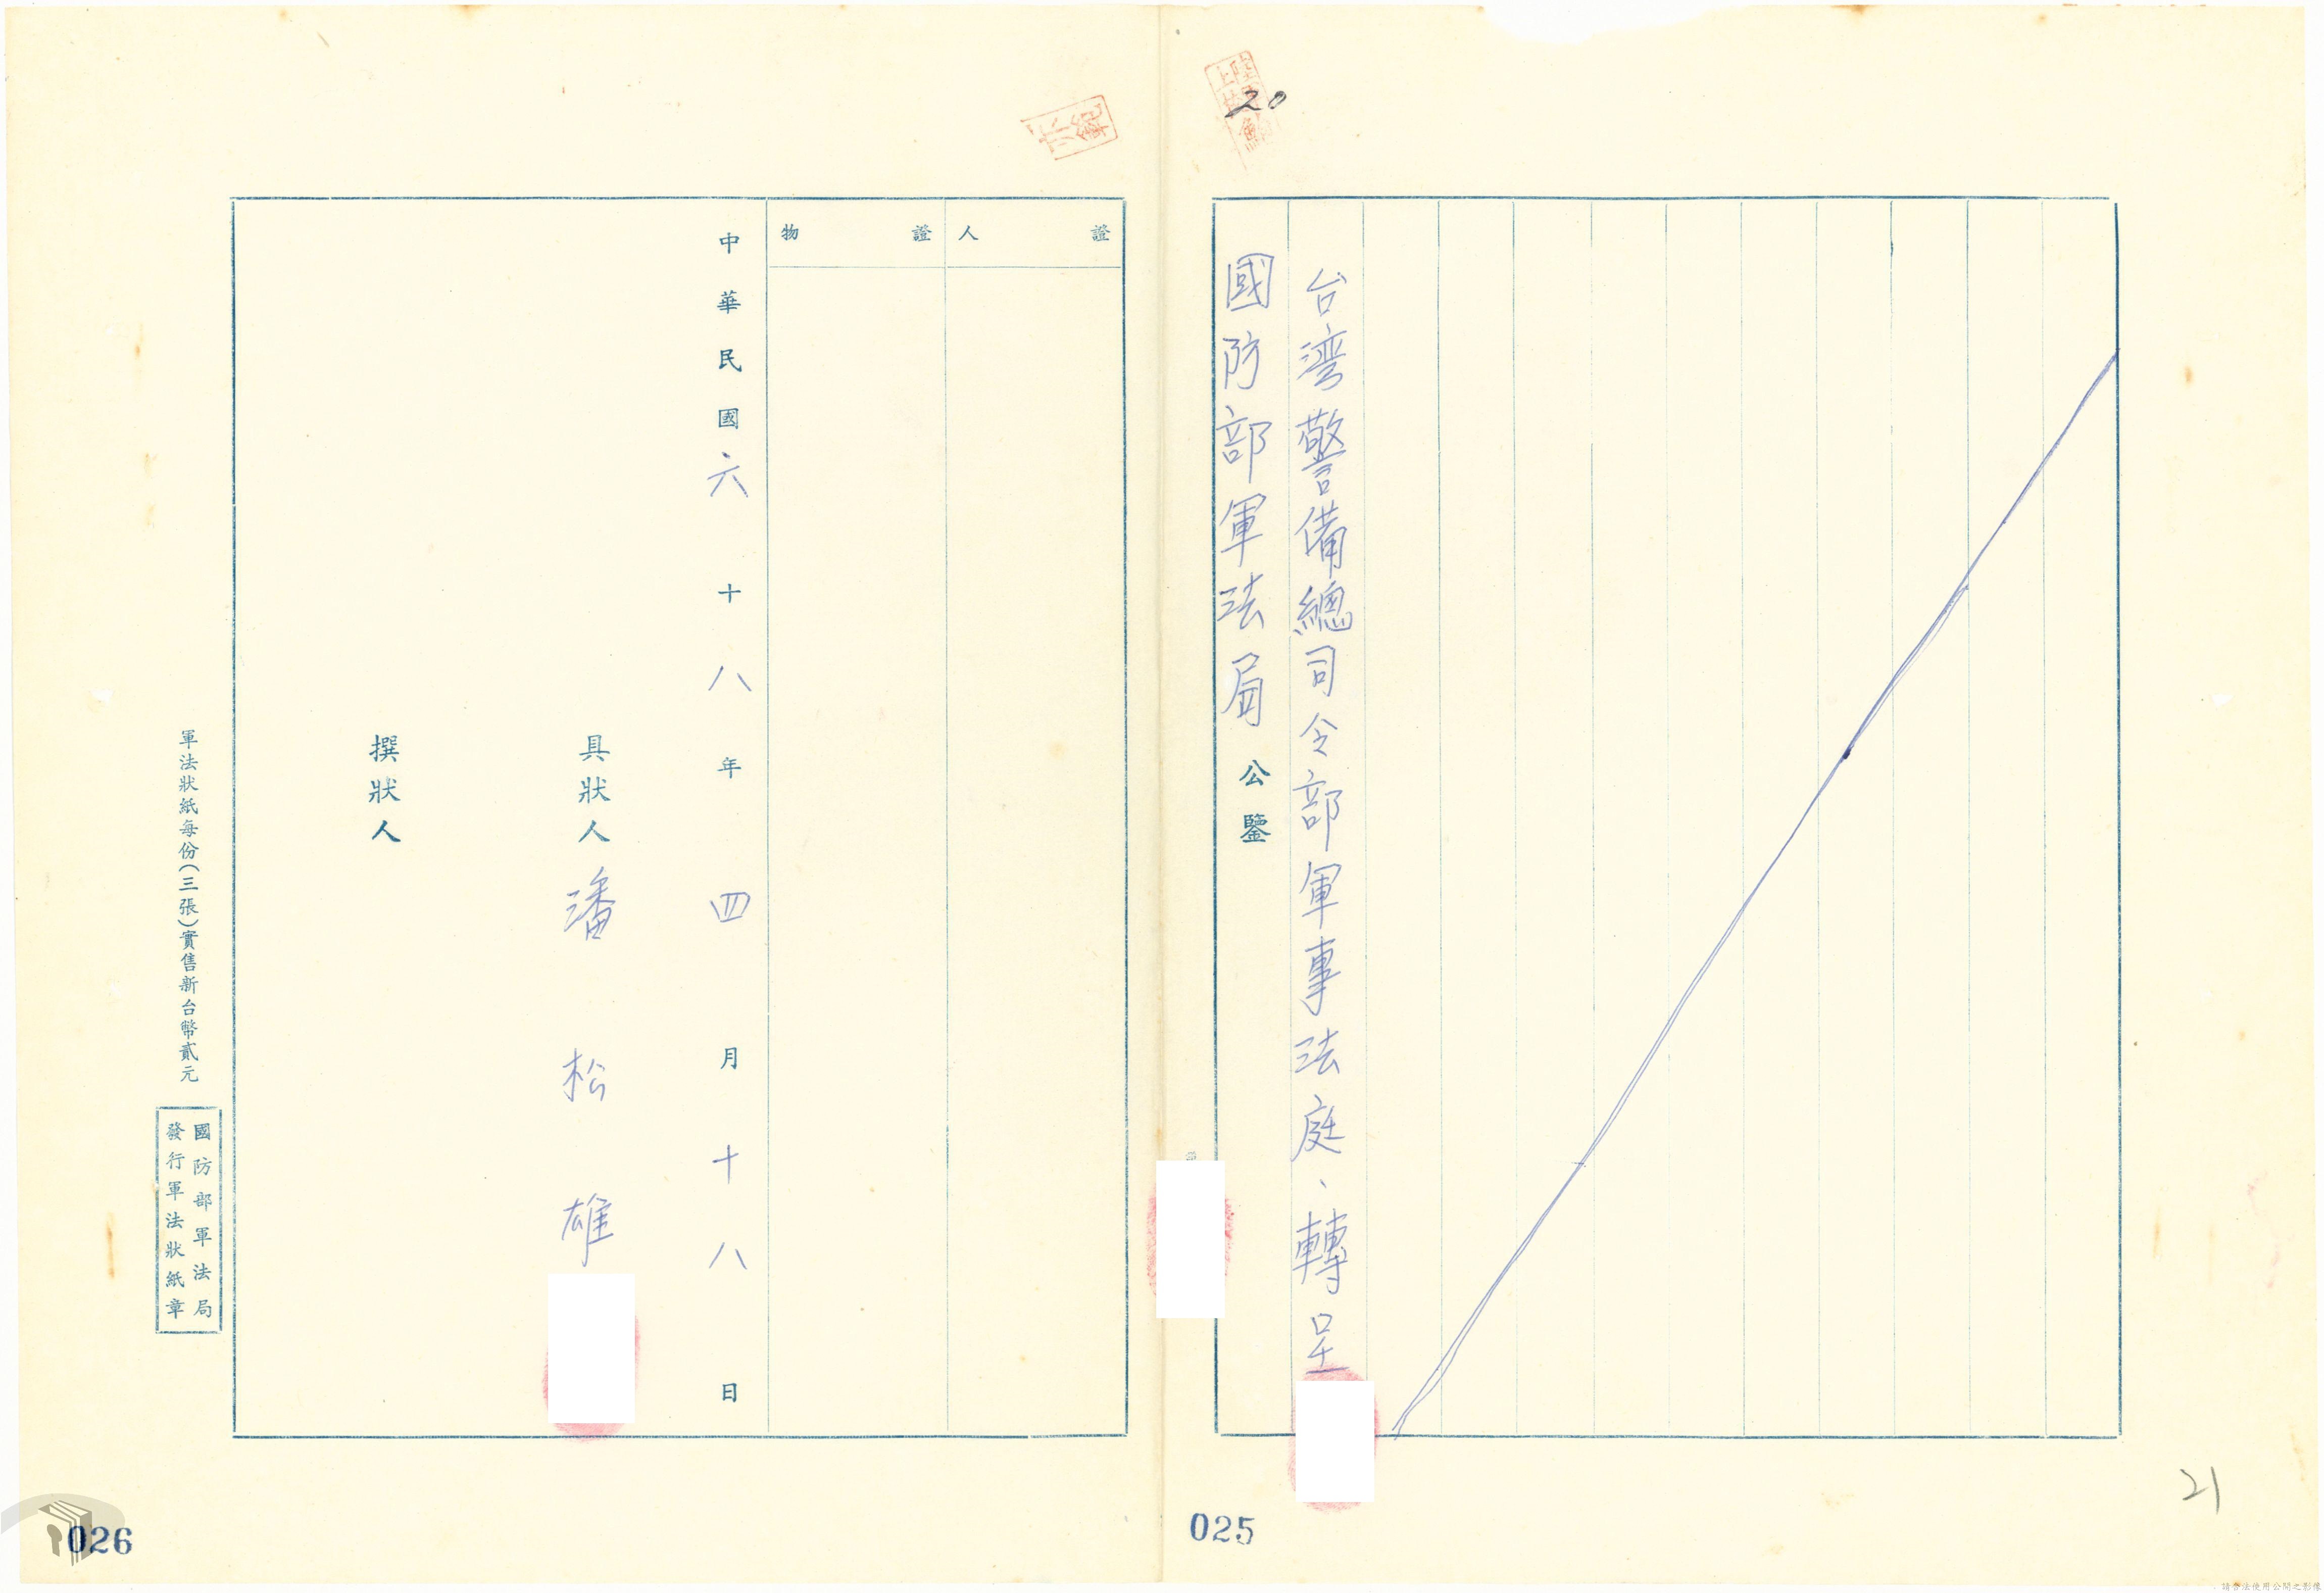 20
台湾警備總司令部軍事法庭、轉呈
國防部軍法局 公鑒
21
025
證人
證物
中華民國六十八年四月十八日
具狀人 潘松雄
撰狀人
軍法狀紙每份(三張)實售新台幣貳元
國防部軍法局
發行軍法狀紙章
026
請合法使用公開之影像